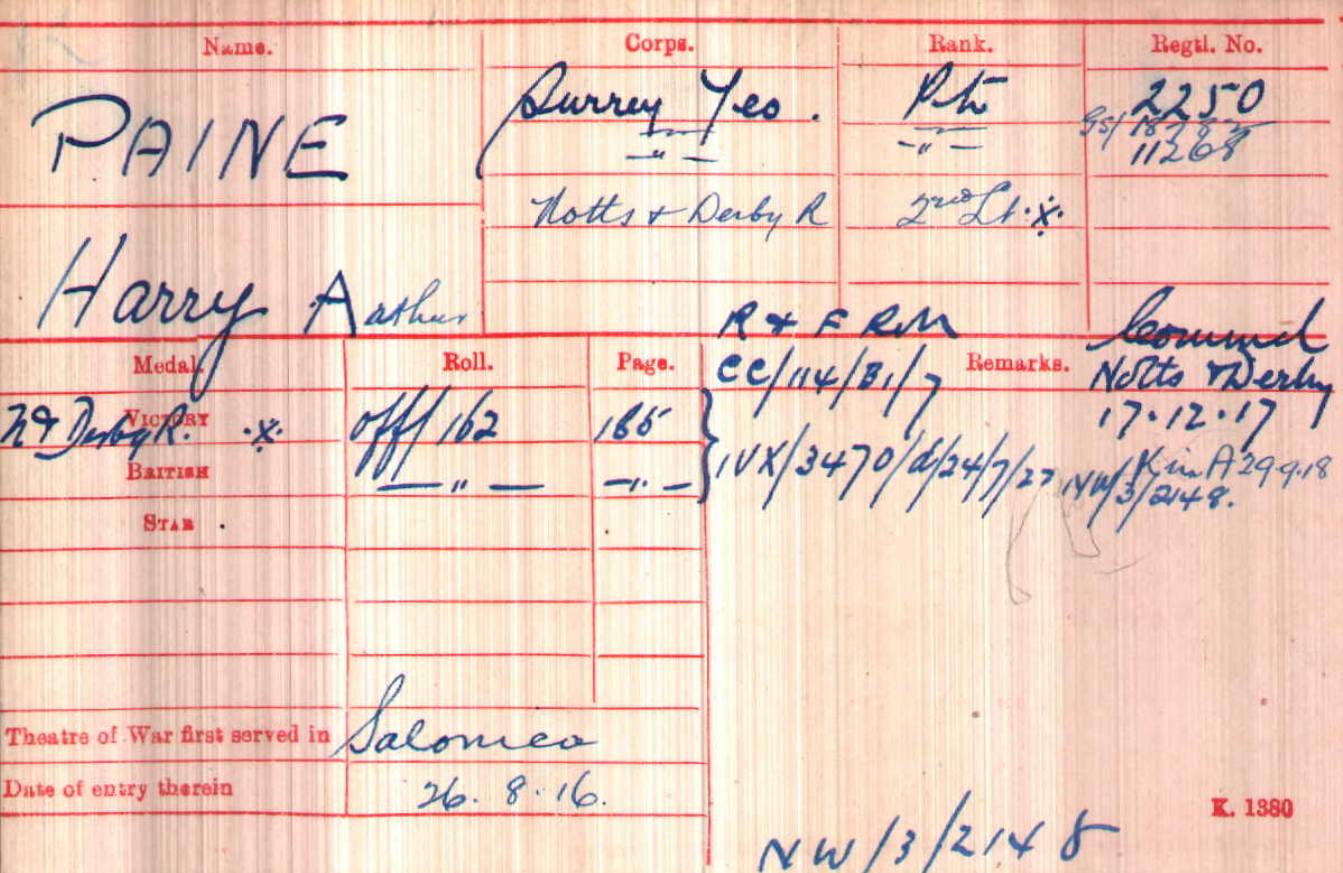 Name. Corps. Rank. Regtl. No.
PAINE Surrey Yeo. Pte 2250
—"— —"— GS/
11268
Notts & Derby R 2nd Lt ·x·
Harry Arthur
R & F RM Commd
Medal. Roll. Page. CC/114/B1/7 Remarks. Notts & Derby
VICTORY N & Derby R. ·x· Off/162 165 17.12.17
BRITISH —"— —"— IVX/3470/d/24/7/27 K in A 29.9.18
NW/3/2148.
STAR
Theatre of War first served in Salonica
Date of entry therein 26.8.16.
K. 1380
NW/3/2148